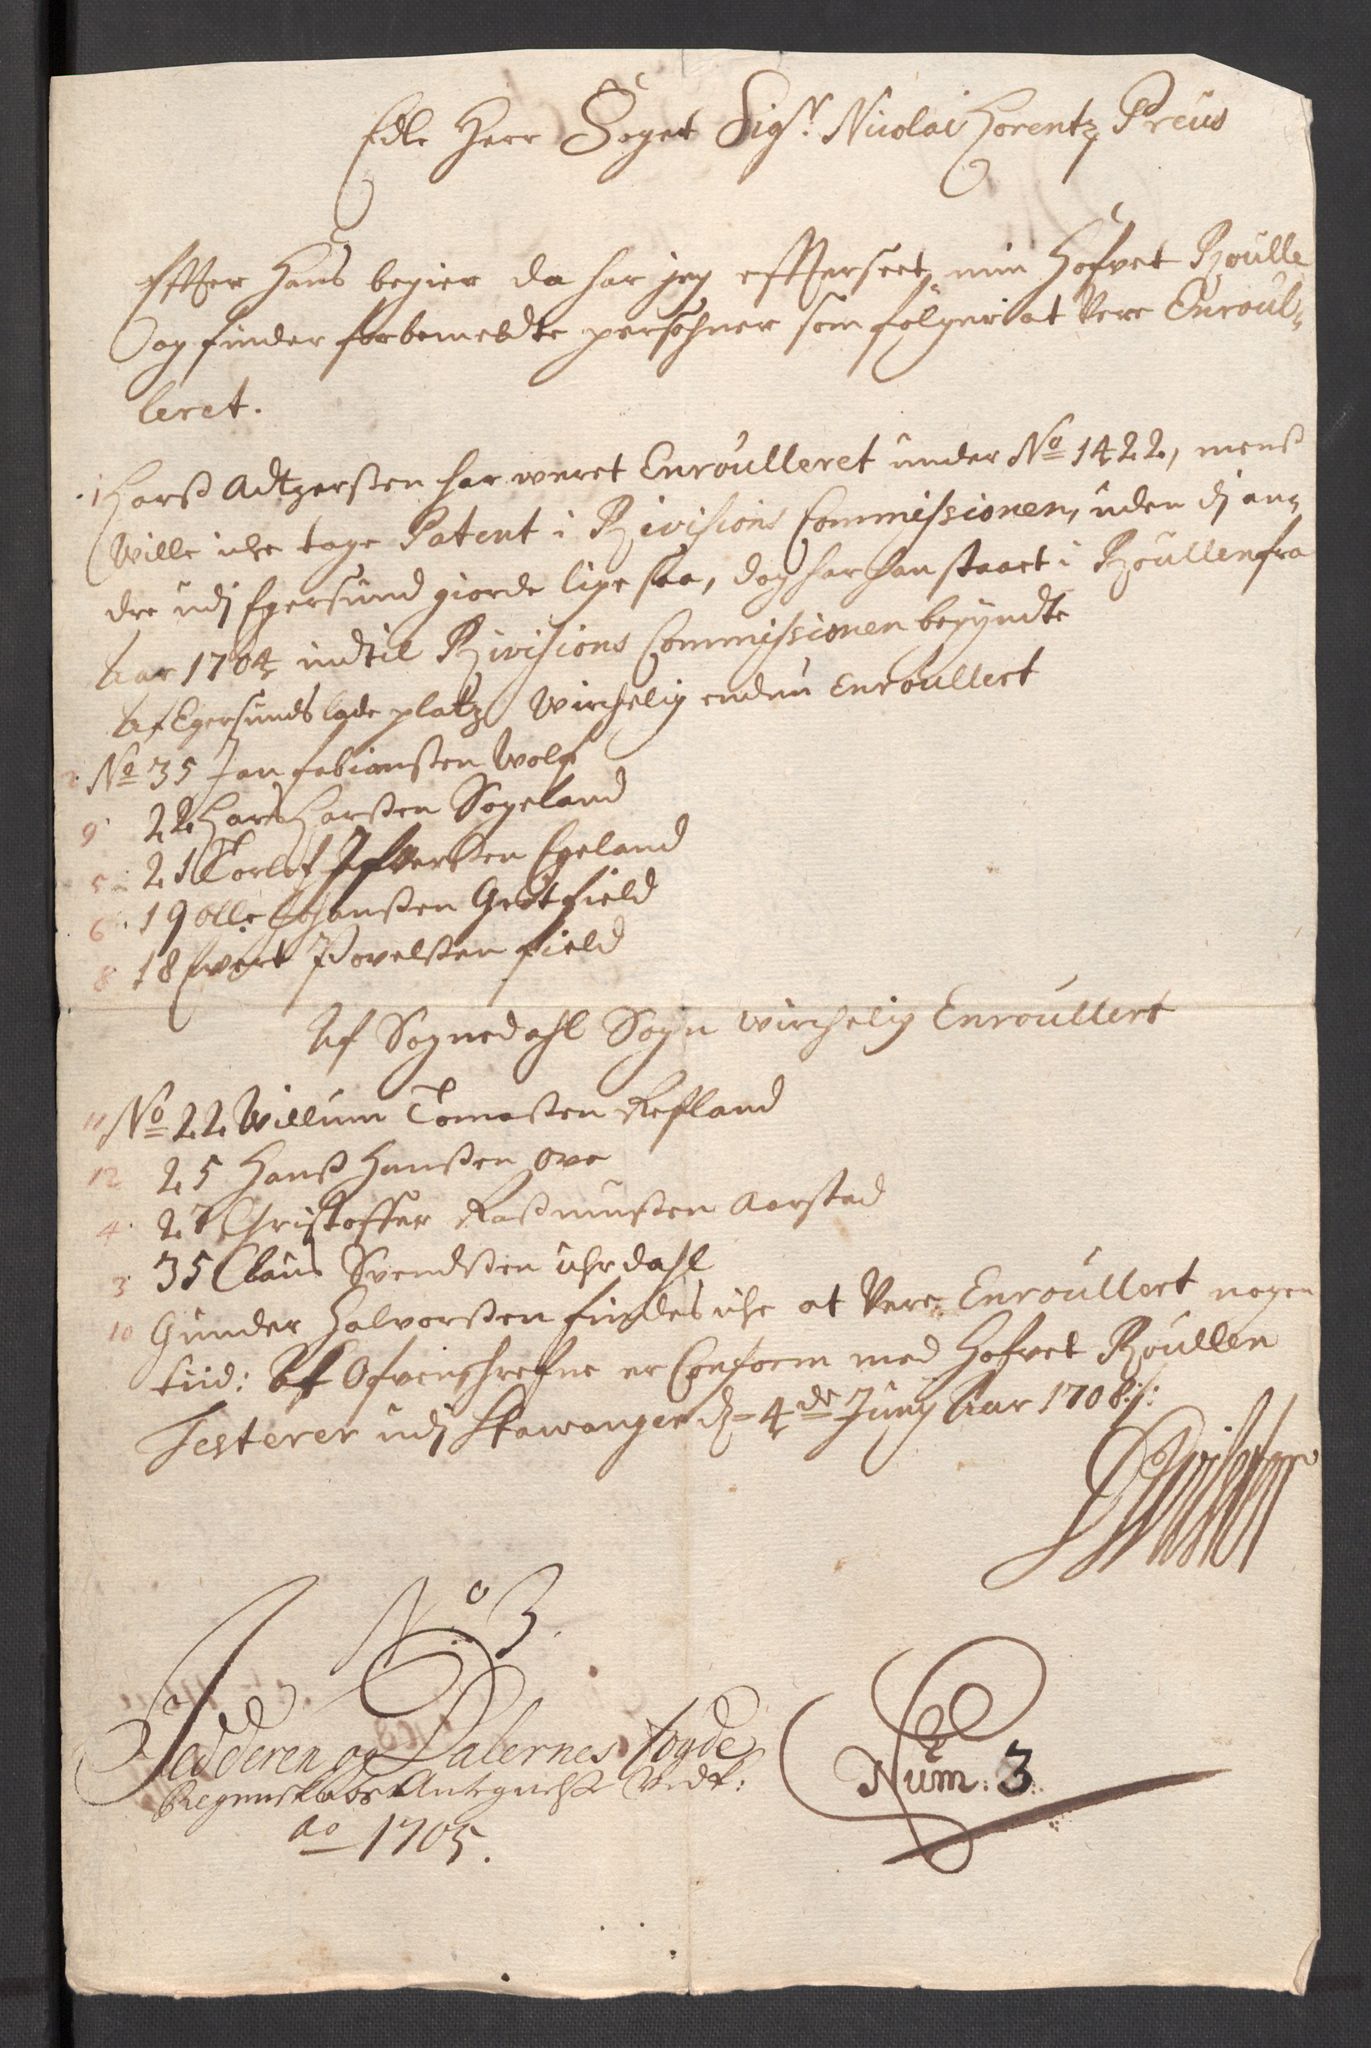 Edle Herr Foget Sigr. Nicolai Lorentz Preus
Effter Hans begier da har jeg effterseet min Hofvet Roulle
og finder forbemeldte persohner som følger at Vere Enroul-
leret.
1 Larß Adtzersten har weret Enroulleret under No 1422, menß
Wille iche tage Patent i Rivisions Commissionen, uden dj an-
dre udj Egersund giorde lige saa, dog har han staaet i Roullen fra
Aar 1704 indtil Rivisions Commissionen begyndte
Af Egersunds lade platz Wirchelig endnu Enroullert
2 No 35 Jan Fabianßen Wolf
9 22 Lars Larßen Sogeland
5 21 Torlof Ifversen Egeland
6 19 Olle Johanßen Gedtfield
8 18 Evert Povelßen Field
Af Sognedahl Sogn wirchelig Enroullert
11 No 22 Willum Tomaßen Refland
12 25 Hanß Hanßen Ove
4 27 Christoffer Raßmußen Aarstad
3 35 Claus Svendßen Uhrdahl
10 Gunder Halvorßen findes iche at Vere Enroullert nogen
tiid: At Ofvenschrefne er Conform med Hofvet Roullen
Testerer udj Stawanger d. 4de Juny Aar 1708 :/:
No 3.
Jedderen og Dalernes fogde
Regnskabs Antegnelse Vedk:
Ao 1705.
Num: 3: